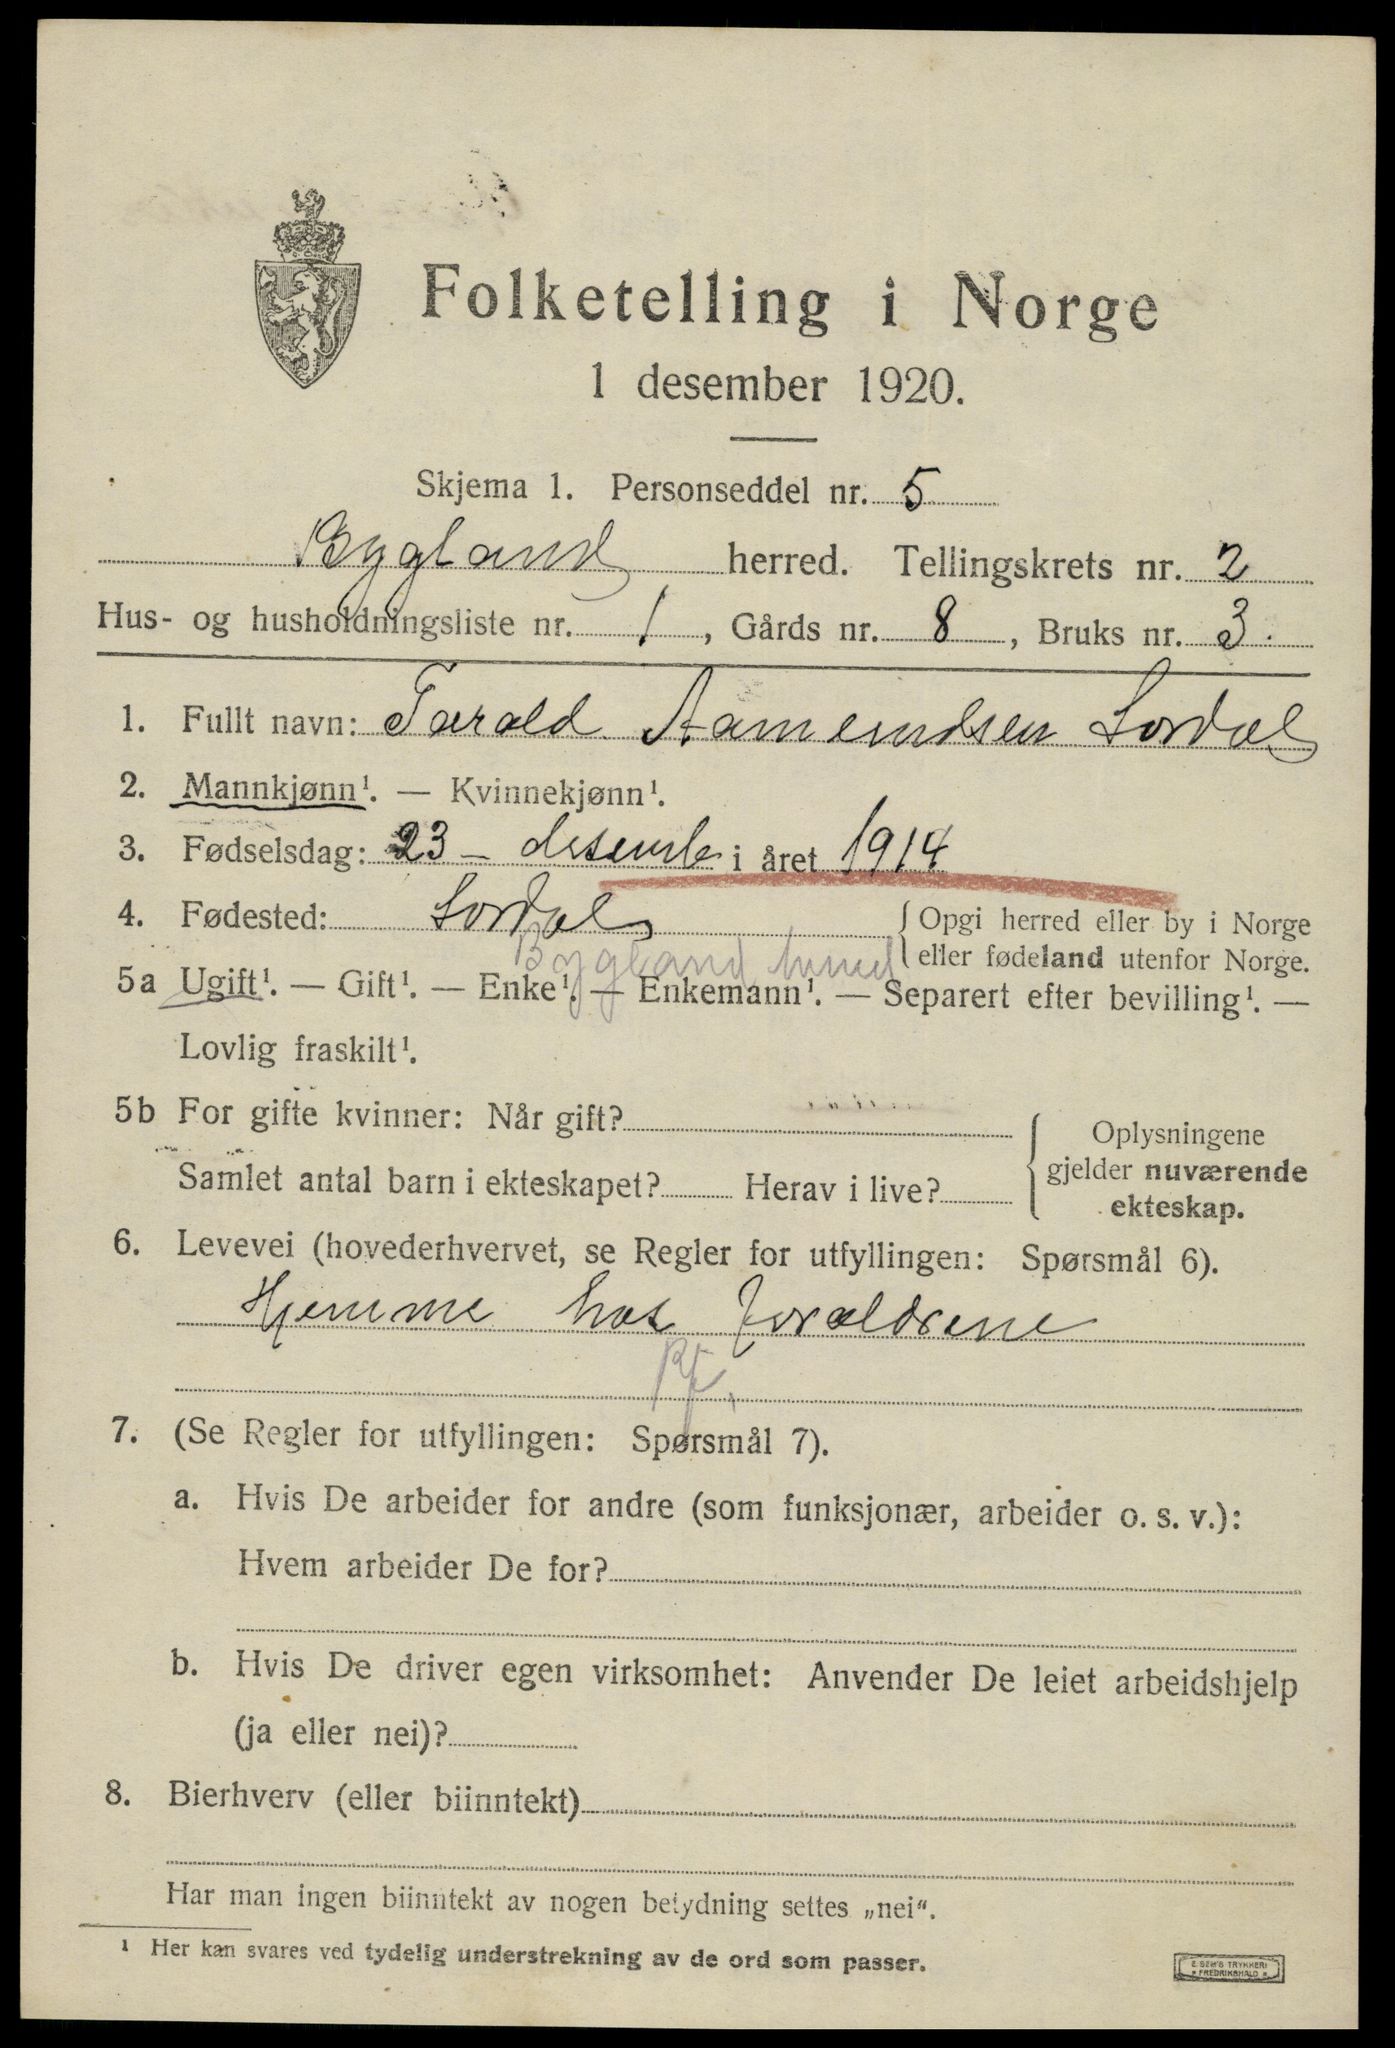 Folketelling i Norge
1 desember 1920.
Skjema 1. Personseddel nr. 5
Bygland herred. Tellingskrets nr. 2
Hus- og husholdningsliste nr. 1, Gårds nr. 8, Bruks nr. 3.
1. Fullt navn: Tarald Aamundsen Lordal
2. Mannkjønn¹. — Kvinnekjønn¹.
3. Fødselsdag: 23 – desembr i året 1914
4. Fødested: Lordal { Opgi herred eller by i Norge
eller fødeland utenfor Norge.
Bygland herred
5a Ugift¹. — Gift¹. — Enke¹. — Enkemann¹. — Separert efter bevilling¹. —
Lovlig fraskilt¹.
5b For gifte kvinner: Når gift?
Samlet antal barn i ekteskapet? Herav i live?
{ Oplysningene
gjelder nuværende
ekteskap.
6. Levevei (hovederhvervet, se Regler for utfyllingen: Spørsmål 6).
Hjemme hos foraldrene
7. (Se Regler for utfyllingen: Spørsmål 7).
a. Hvis De arbeider for andre (som funksjonær, arbeider o. s. v.):
Hvem arbeider De for?
b. Hvis De driver egen virksomhet: Anvender De leiet arbeidshjelp
(ja eller nei)?
8. Bierhverv (eller biinntekt)
Har man ingen biinntekt av nogen betydning settes „nei“.
¹ Her kan svares ved tydelig understrekning av de ord som passer.
E. SEM'S TRYKKERI
* FREDRIKSHALD *